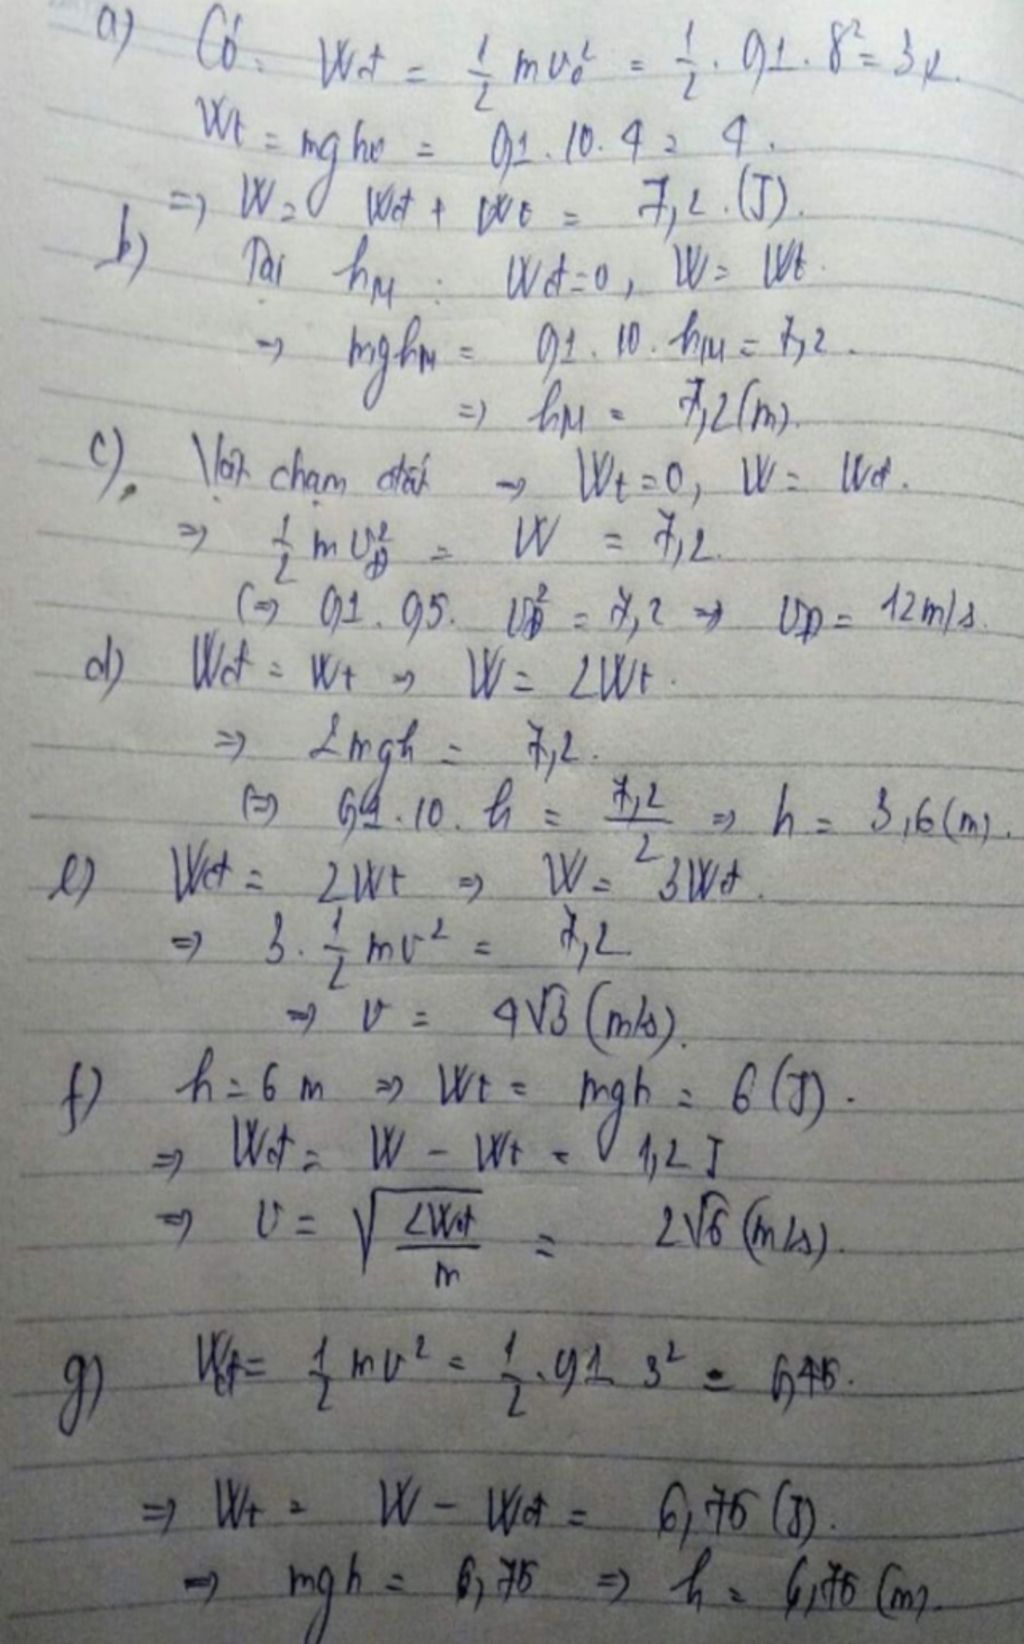 a) Có: Wđ = 1/2 mv₀² = 1/2 . 0,1 . 8² = 3,2.
Wt = mgh₀ = 0,1 . 10 . 4 = 4.
=> W = Wđ + Wt = 7,2 . (J).
b) Tại hM : Wđ = 0, W = Wt.
→ mghM = 0,1 . 10 . hM = 7,2.
=> hM = 7,2 (m).
c), Vật chạm đất → Wt = 0, W = Wđ.
=> 1/2 mvĐ² = W = 7,2.
(=> 0,1 . 0,5 . vĐ² = 7,2 => vĐ = 12 m/s.
d) Wđ = Wt → W = 2Wt.
=> 2mgh = 7,2.
(=> 0,1 . 10 . h = 7,2/2 => h = 3,6 (m).
e) Wđ = 2Wt => W = 3Wđ.
=> 3 . 1/2 mv² = 7,2
=> v = 4√3 (m/s).
f) h = 6 m => Wt = mgh = 6 (J).
=> Wđ = W - Wt = 1,2 J
=> v = √(2Wđ/m) = 2√6 (m/s).
g) Wđ = 1/2 mv² = 1/2 . 0,1 3² = 0,45.
=> Wt = W - Wđ = 6,75 (J).
=> mgh = 6,75 => h = 6,75 (m).